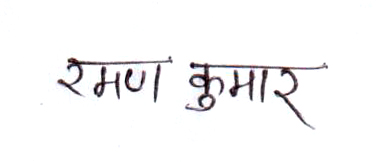 रमण कुमार